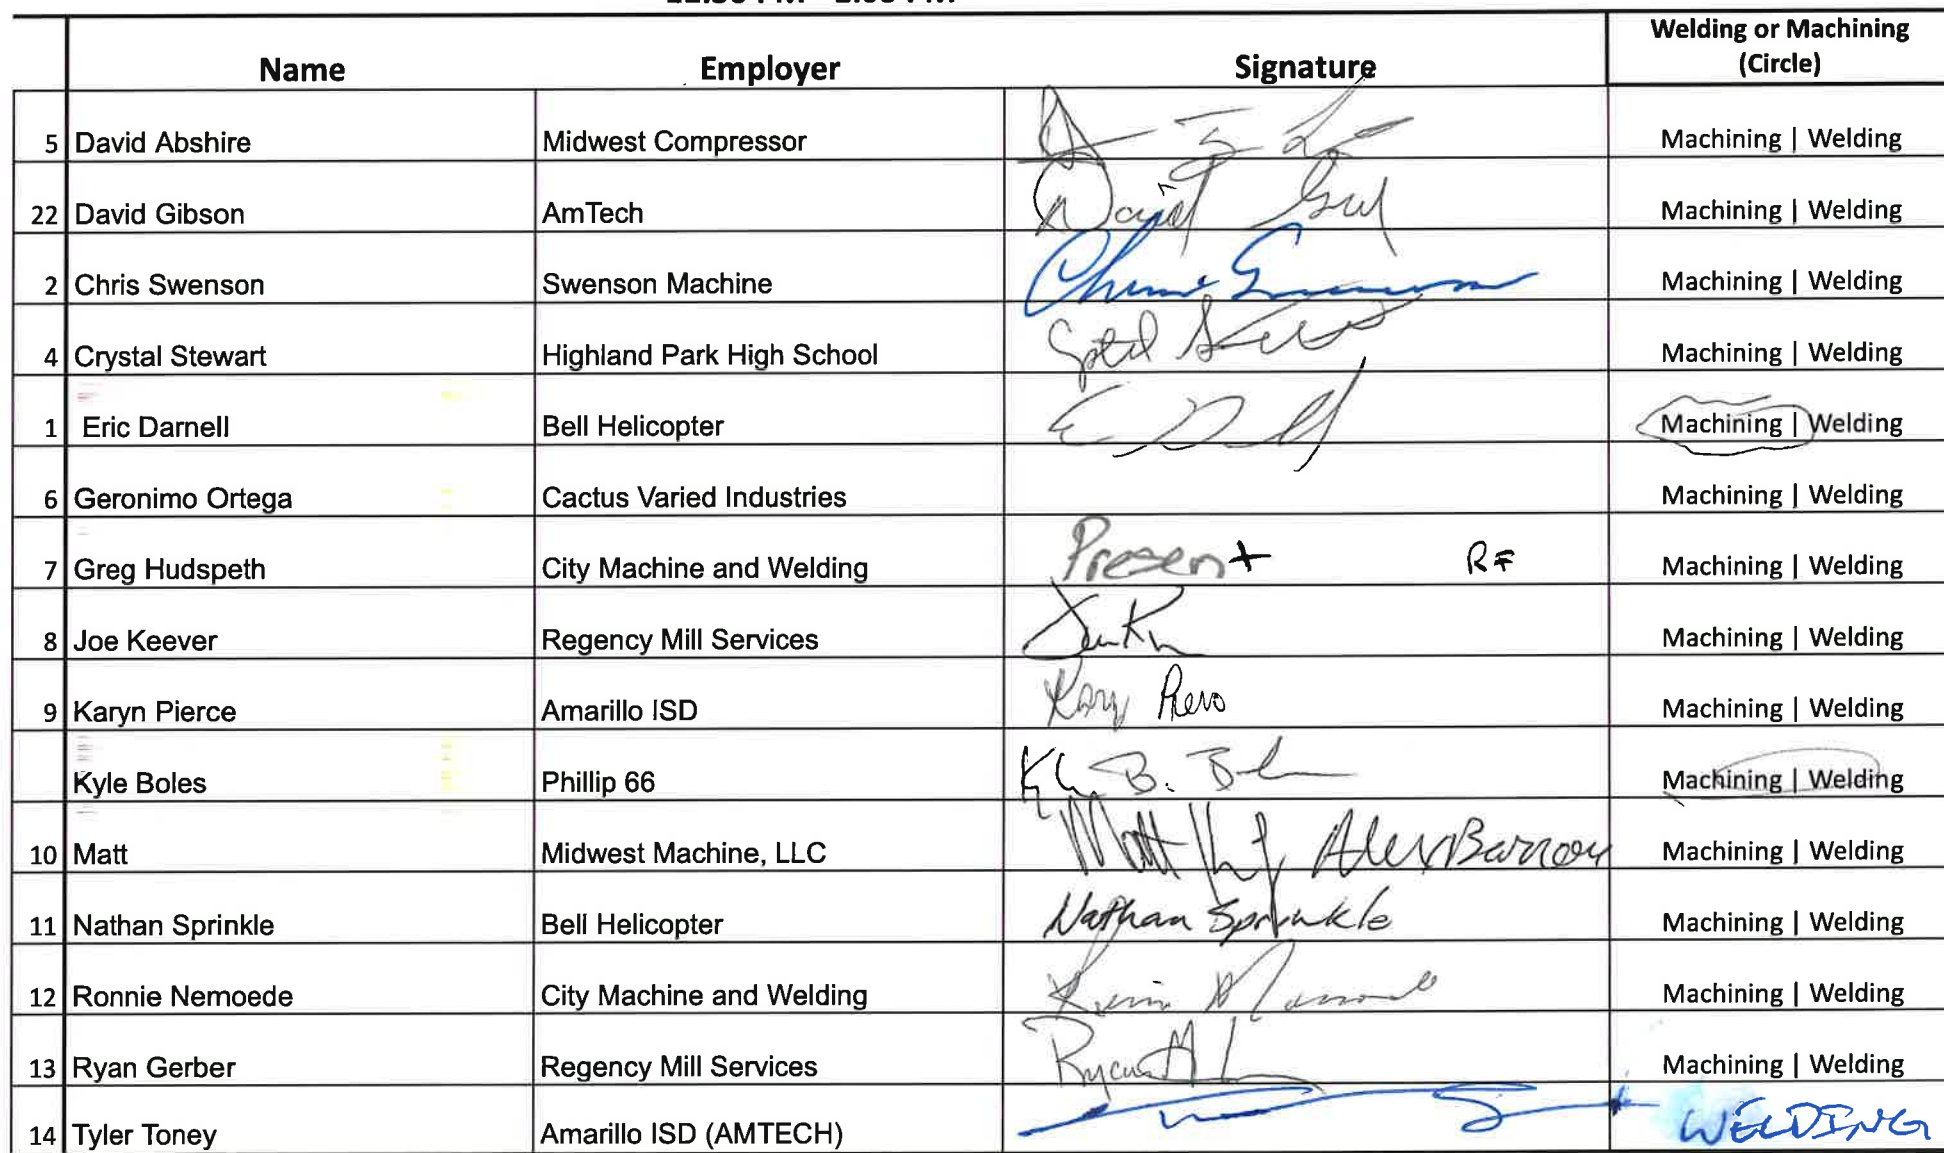 Name Employer Signature Welding or Machining
(Circle)
5 David Abshire Midwest Compressor Machining | Welding
22 David Gibson AmTech David Machining | Welding
2 Chris Swenson Swenson Machine Chris Swenson Machining | Welding
4 Crystal Stewart Highland Park High School Machining | Welding
1 Eric Darnell Bell Helicopter Machining | Welding
6 Geronimo Ortega Cactus Varied Industries Machining | Welding
7 Greg Hudspeth City Machine and Welding Present RF Machining | Welding
8 Joe Keever Regency Mill Services Machining | Welding
9 Karyn Pierce Amarillo ISD Machining | Welding
Kyle Boles Phillip 66 Machining | Welding
10 Matt Midwest Machine, LLC Matt Alex Barron Machining | Welding
11 Nathan Sprinkle Bell Helicopter Nathan Sprinkle Machining | Welding
12 Ronnie Nemoede City Machine and Welding Machining | Welding
13 Ryan Gerber Regency Mill Services Machining | Welding
14 Tyler Toney Amarillo ISD (AMTECH) WELDING